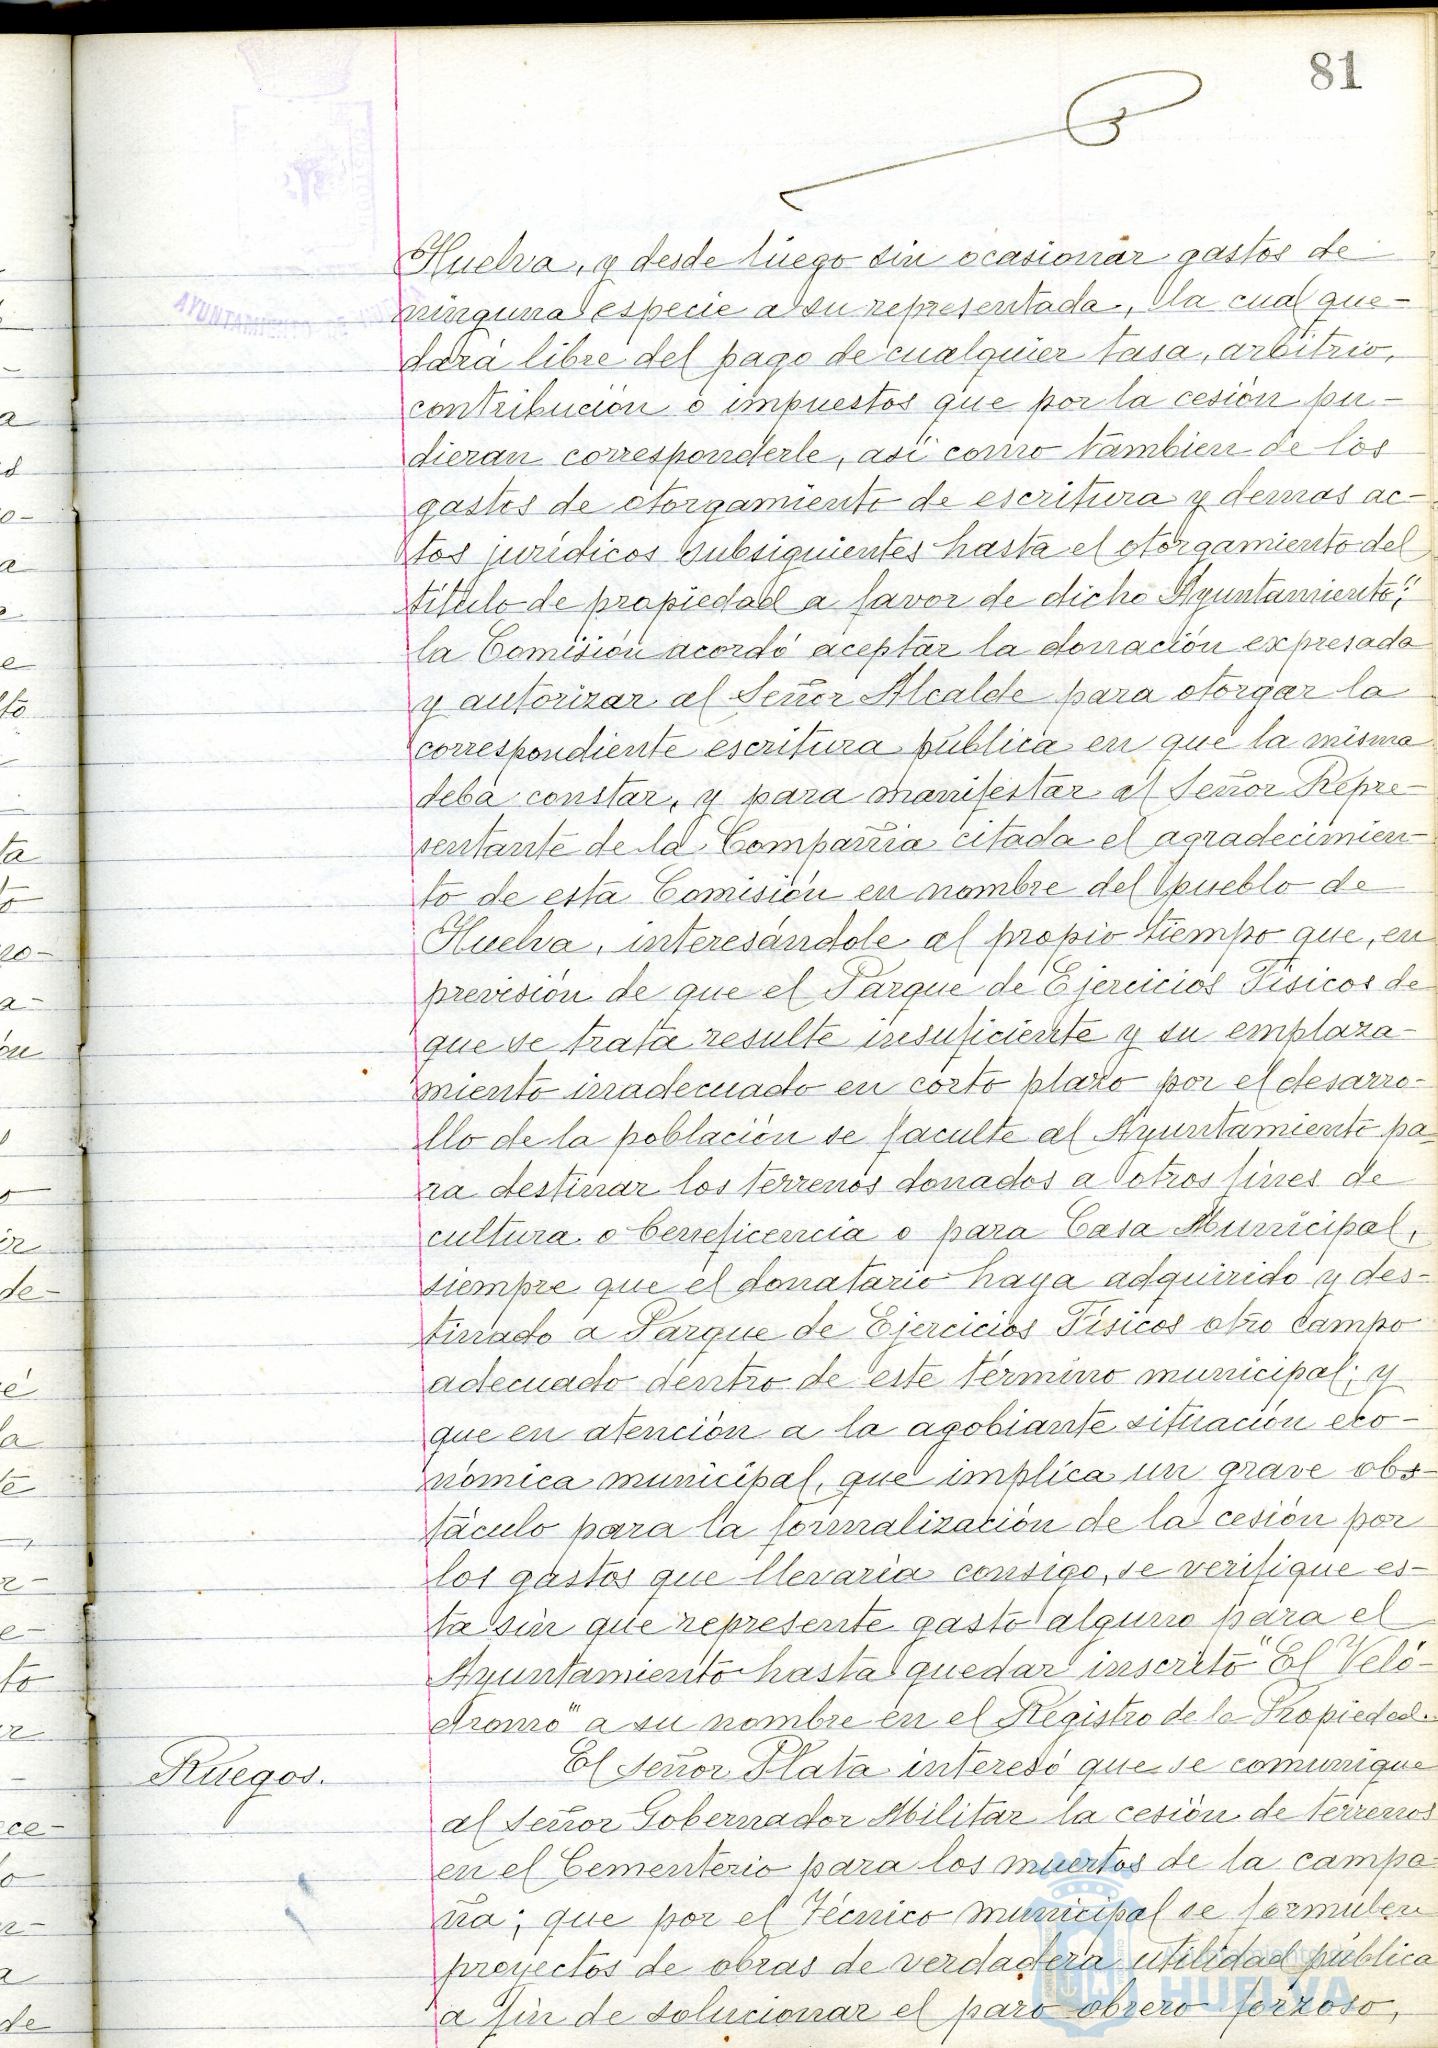 81
Huelva, y desde luego sin ocasionar gastos de
ninguna especie a su representada, la cual que-
dará libre del pago de cualquier tasa, arbitrio,
contribución o impuestos que por la cesión pu-
dieran corresponderle, así como tambien de los
gastos de otorgamiento de escritura y demas ac-
tos jurídicos subsiguientes hasta el otorgamiento del
título de propiedad a favor de dicho Ayuntamiento";
la Comisión acordó aceptar la donación expresada
y autorizar al Señor Alcalde para otorgar la
correspondiente escritura pública en que la misma
deba constar, y para manifestar al Señor Repre-
sentante de la Compañia citada el agradecimien-
to de esta Comisión en nombre del pueblo de
Huelva, interesándole al propio tiempo que, en
previsión de que el Parque de Ejercicios Físicos de
que se trata resulte insuficiente y su emplaza-
miento inadecuado en corto plazo por el desarro-
llo de la población se faculte al Ayuntamiento pa-
ra destinar los terrenos donados a otros fines de
cultura o beneficencia o para Casa Municipal,
siempre que el donatario haya adquirido y des-
tinado a Parque de Ejercicios Físicos otro campo
adecuado dentro de este término municipal; y
que en atención a la agobiante situación eco-
nómica municipal, que implica un grave obs-
táculo para la formalización de la cesión por
los gastos que llevaría consigo, se verifique es-
ta sin que represente gasto alguno para el
Ayuntamiento hasta quedar inscrito "El Veló-
dromo" a su nombre en el Registro de la Propiedad.
Ruegos.
El Señor Plata interesó que se comunique
al Señor Gobernador Militar la cesión de terrenos
en el Cementerio para los muertos de la campa-
ña; que por el Técnico municipal se formulen
proyectos de obras de verdadera utilidad pública
a fin de solucionar el paro obrero forzoso,
AYUNTAMIENTO DE
Ayuntamiento de
HUELVA